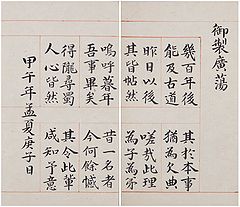 御製廣蕩
幾百年後 其於本事
能及古道 猶為欠典
昨日以後 嗟哉此理
其皆帖然 為子為弟
嗚呼暮年 昔一名者
吾事畢矣 今何餘憾
得隴尋蜀 其令此輩
人心皆然 咸知予意
甲午年孟夏庚子日